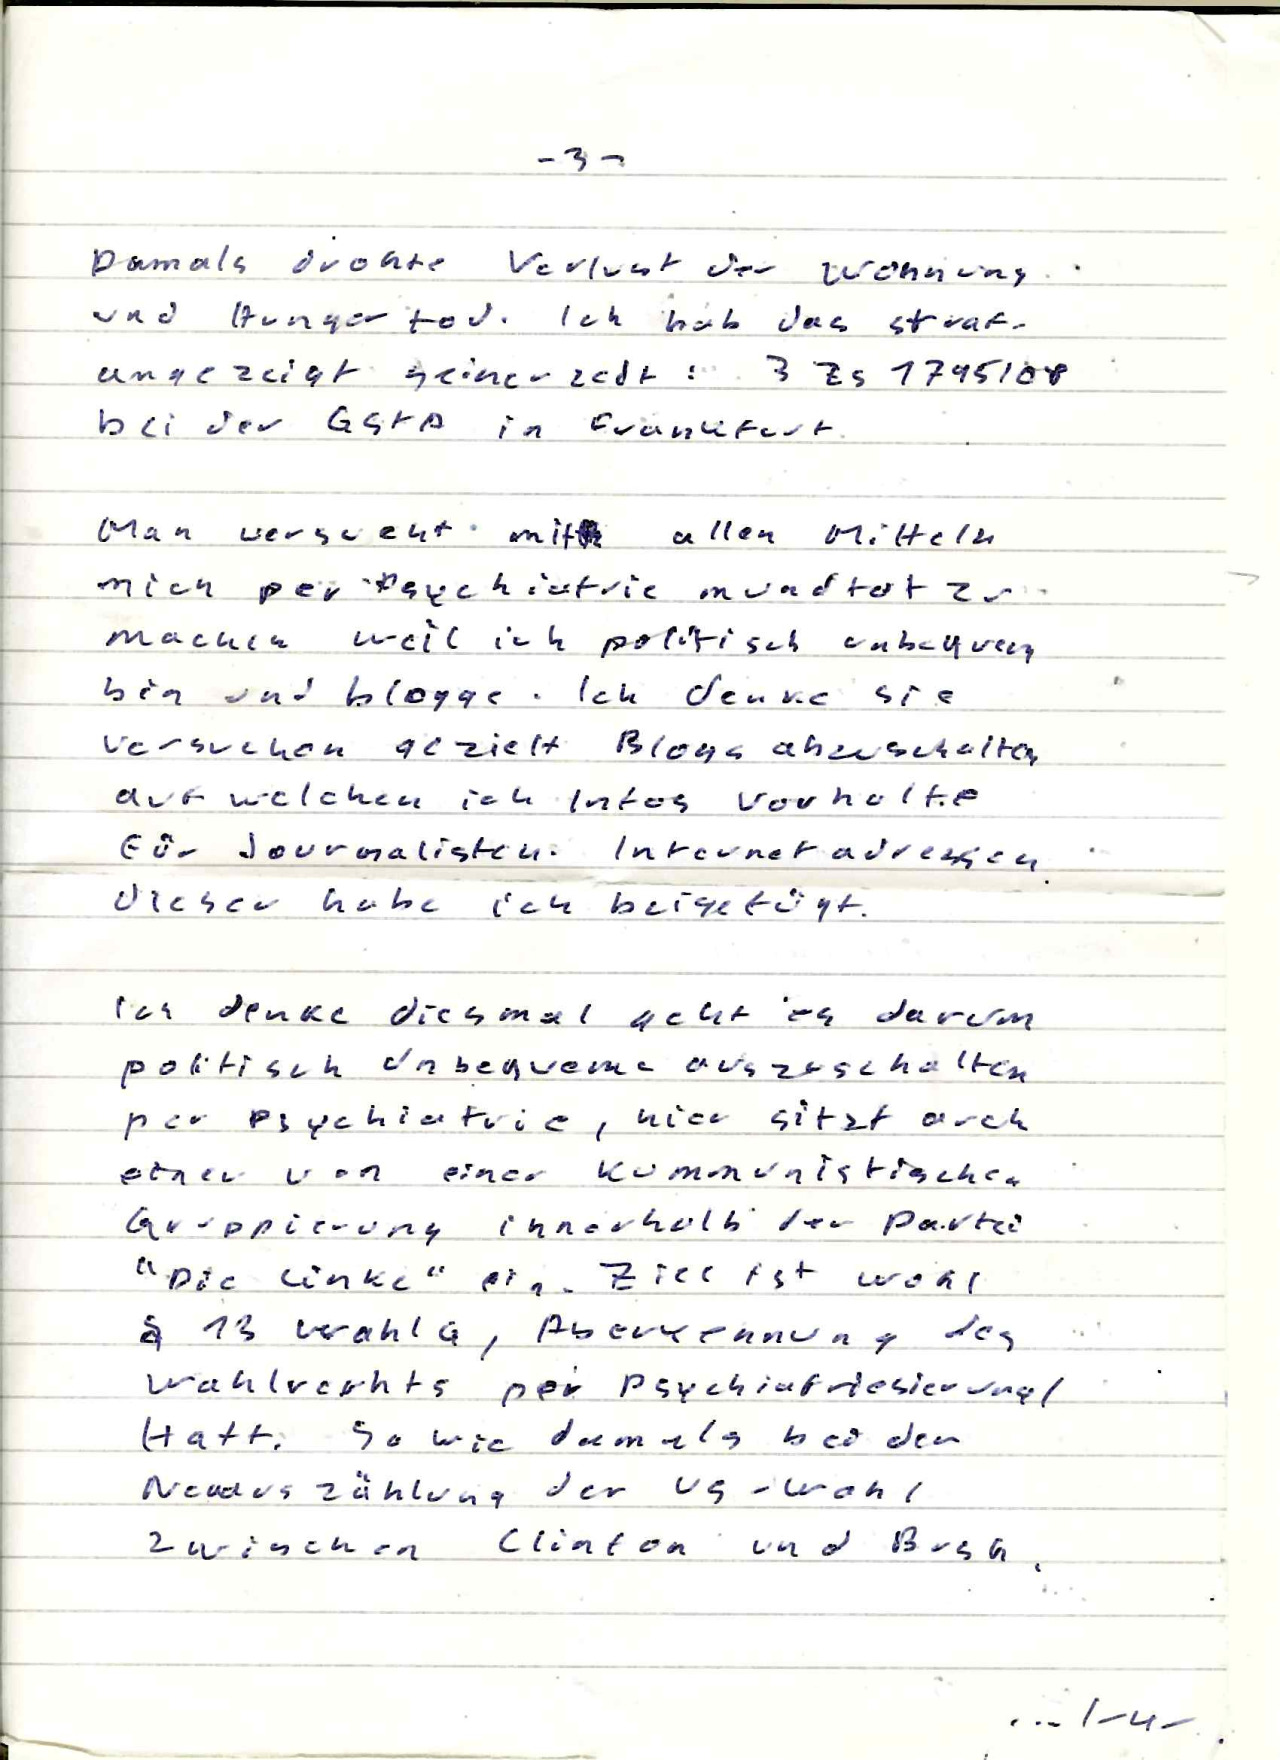 -3-
Damals drohte Verlust der Wohnung
und Hungertod. Ich hab das straf-
angezeigt seinerzeit: 3 Zs 1795/08
bei der GStA in Frankfurt.
Man versucht mit allen Mitteln
mich per Psychiatrie mundtot zu
machen weil ich politisch unbequem
bin und blogge. Ich denke sie
versuchen gezielt Blogs abzuschalten
auf welchen ich Infos vorhalte
für Journalisten. Internetadressen
dieser habe ich beigefügt.
Ich denke diesmal geht es darum
politisch Unbequeme auszuschalten
per Psychiatrie, hier sitzt auch
einer von einer kommunistischen
Gruppierung innerhalb der Partei
"Die Linke" ein. Ziel ist wohl
§ 13 WahlG, Aberkennung des
Wahlrechts per Psychiatriesierung/
Haft. So wie damals bei der
Neuauszählung der US-Wahl
zwischen Clinton und Bush.
.../-4-